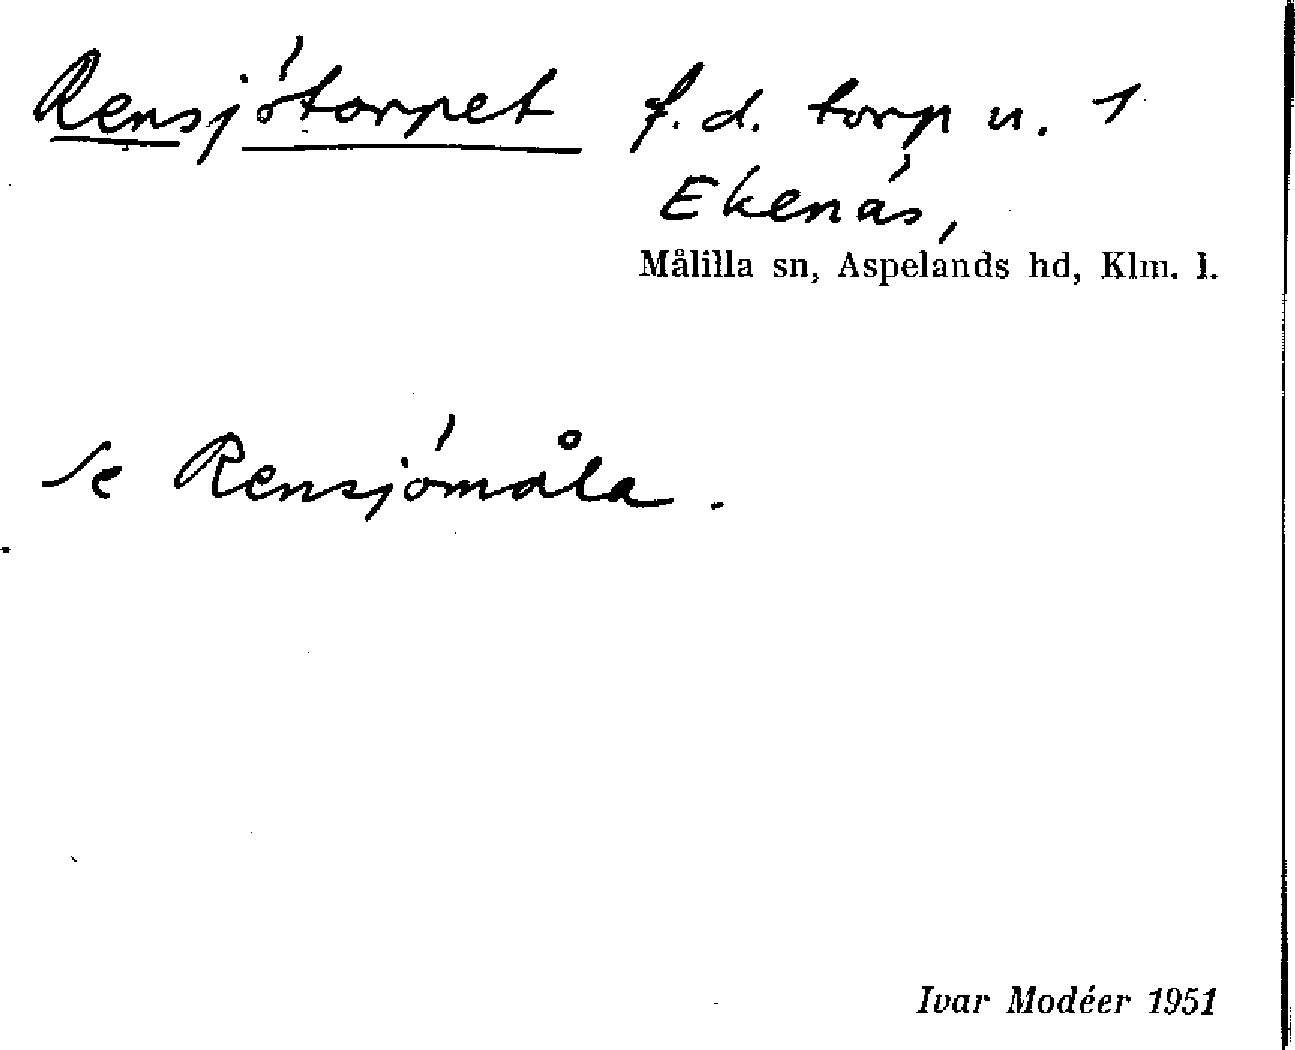 Rensjötorpet f.d. torp u. 1
Ekenäs,
Målilla sn, Aspelands hd, Klm. l.
Se Rensjömåla.
Ivar Modéer 1951